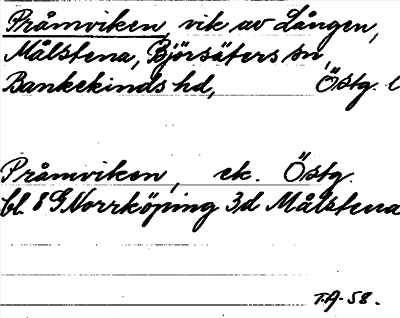 Pråmviken, vik av Lången,
Målstena, Björsäters sn,
Bankekinds hd, Östg. l
Pråmviken, ek. Östg.
bl. 8 G Norrköping 3d Målstena
T.A-58.